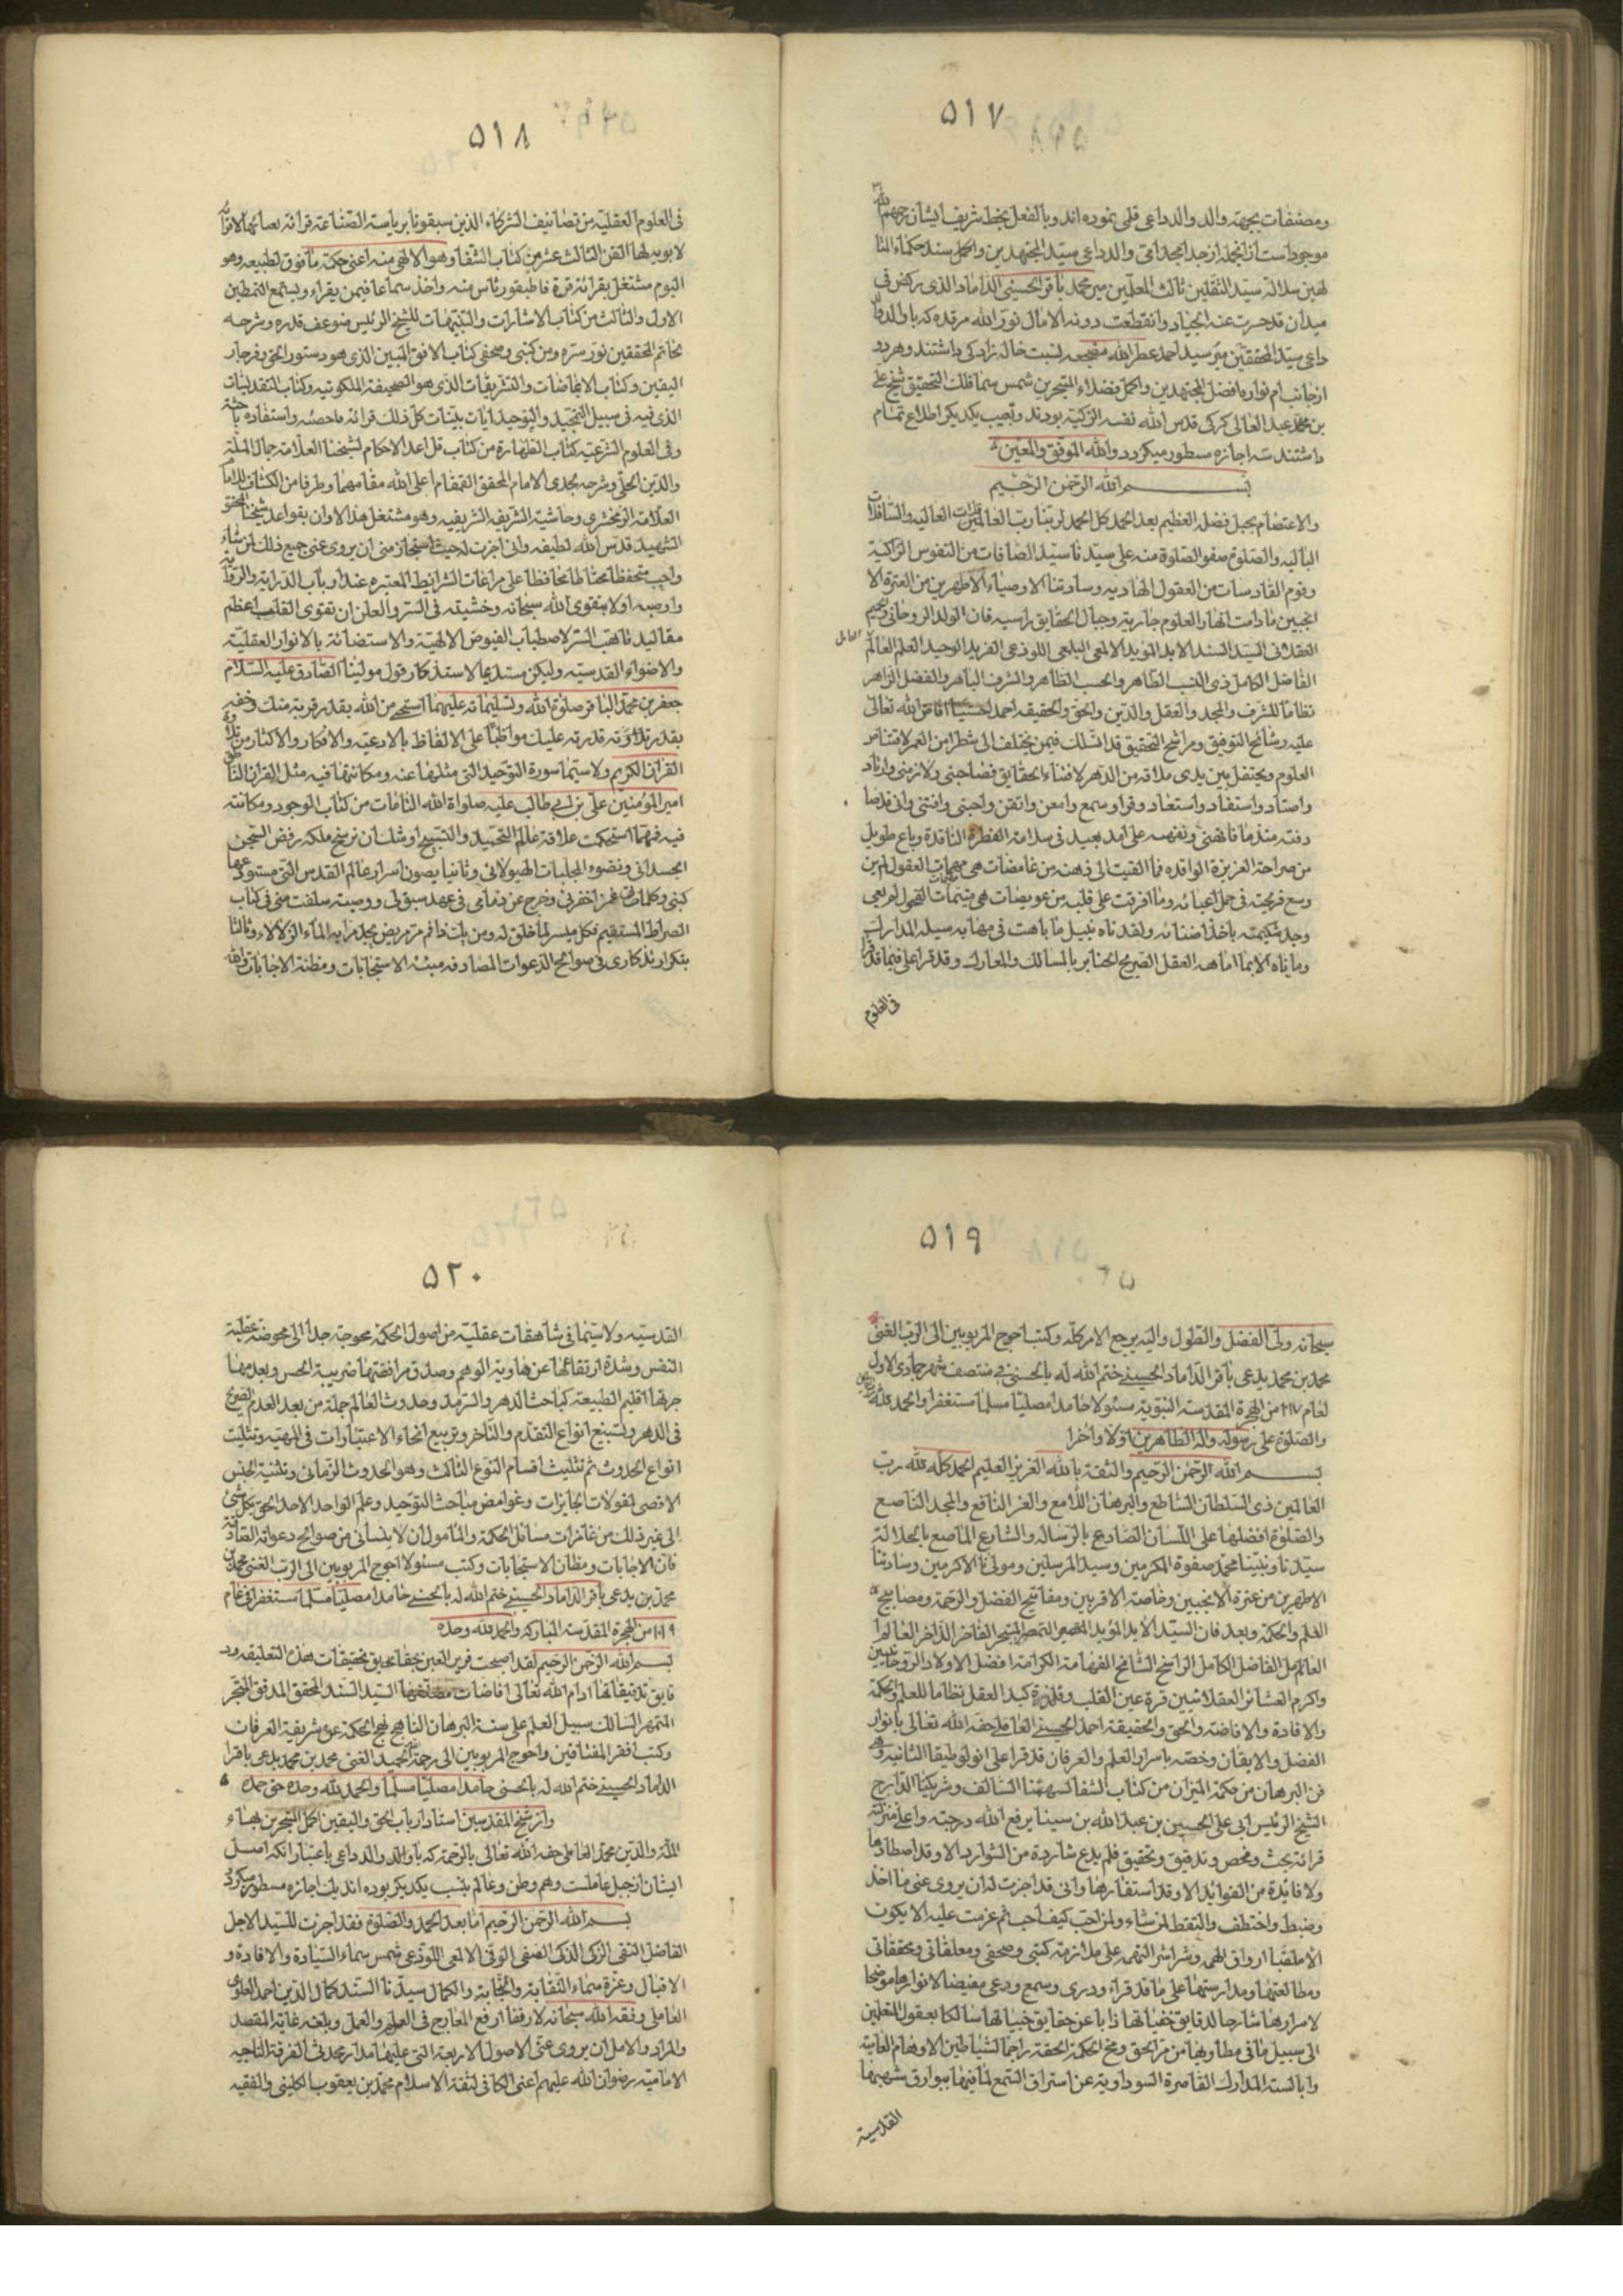 ۵۱۷
ومصنفات بجهة والد والد داعی قلمی نموده اند وبالفعل بخط شریف ایشان رحمهم الله
موجود است از انجمله از جد امجد امی والد داعی سید المجتهدین واکمل سند حکماء المتا
لهین سلالة سید الثقلین ثالث المعلمین میر محمد باقر الحسینی الداماد الذی رکض فی
میدان قد حسرت عنه الجیاد وانقطعت دونه الامال نور الله مرقده که با والد والد
داعی سید المحققین میر سید احمد عطر الله مضجعه نسبت خاله زادکی داشتند وهر دو
از جانب ام نواده افضل المجتهدین واکمل فضلاء المتبحرین شمس سماء فلک التحقیق شیخ علی
بن محمد عبد العالی کرکی قدس الله نفسه الزکیة بودند وبحسب یکدیکر اطلاع تمام
داشتند سه اجازه مسطور میکردد والله الموفق والمعین
بسم الله الرحمن الرحیم
والاعتصام بحبل فضله العظیم بعد الحمد کل الحمد لربنا رب العالمین العالیه والسافلات
البالیه والصلوة صفو الصلوة منه علی سیدنا سید الصافات من النفوس الزاکیة
وقوم القادسات من العقول الهادیه وسادتنا الاوصیاء الاطهرین من العترة الا
نجبین مادامت انهار العلوم جاریة وجبال الحقایق راسیه فان الولد الروحانی والحمیم
العقلانی السید السند الاید المؤید الالمعی اللوذعی الفرید الوحید العلم العالم العامل
الفاضل الکامل ذی النسب الطاهر والحسب الظاهر والشرف الباهر والفضل الزاهر
نظاما للشرف والمجد والعقل والدین والحق والحقیقه احمد الحسینی افاض الله تعالی
علیه رشایح التوفیق ومراشح التحقیق قد انسلک فیمن یختلف الی شطرا من العمر لاقتناص
العلوم ویحتفل بین یدی ملاوة من الدهر لاقتناء الحقایق فصاحبنی ولازمنی وارتاد
واصتاد واستفاد واستعاد وقرا وسمع وامعن واتقن واجتنی واقتنی وانی قد صا
دفته منذ ما فاهنی وفهمته علی امد بعید فی سلامة الفطرة الناقدة وباع طویل
من صراحة الغریزة الواقده فما القیت الی ذهنه من غامضات هی مهمات العقول لم یبن
وسع قریحته فی حمل اعبائه وما افرغت علی قلبه من عویصات هی متیهات الفحول لم یعی
وجد شکیمته باخذ اضنائه ولقد تاه بنیل ما باهت فی مهابه سیله المدارک
وما تاه الا بما امامه العقل الصریح الحنابر بالمسالک والمعارک وقد قرا علی فیما قد قرا
فی العلوم
۵۱۸
فی العلوم العقلیة من تصانیف الشرکاء الذین سبقونا بریاسة الصناعة قرائة یعبا بها الاقرا
لا یوبه لها الفن الثالث عشر من کتاب الشفا وهو الالهی منه اعنی حکمة ما فوق الطبیعه وهو
الیوم مشتغل بقرائة فن قاطیغوریاس منه واخذ سماعا فیمن یقراء ویسمع النمطین
الاول والثالث من کتاب الاشارات والتنبیهات للشیخ الرئیس ضوعف قدره وشرحه
لخاتم المحققین نور سره ومن کتبی وصحفی کتاب الافق المبین الذی هو دستور الحق وفرجار
الیقین وکتاب الایماضات والتشریقات الذی هو الصحیفة الملکوتیه وکتاب التقدیسات
الذی فیه فی سبیل التمجید والتوحید ایات بینات کل ذلک قرائة فاحصة واستفادة باحثة
وفی العلوم الشرعیه کتاب الطهارة من کتاب قواعد الاحکام لشیخنا العلامة جمال الملة
والدین الحلی وشرحه لجدی الامام المحقق القمقام اعلی الله مقامهما وطرفا من الکشاف للامام
العلامة الزمخشری وحاشیة الشریف الشریفیه وهو مشتغل هذا الاوان بقواعد شیخنا المحقق
الشهید قدس الله لطیفه وانی اجزت له حیث استجاز منی ان یروی عنی جمیع ذلک لمن شاء
واحب متحفظا محتاطا محافظا علی مراعات الشرایط المعتبره عند ارباب الدرایة والروایة
واوصیه اولا بتقوی الله سبحانه وخشیته فی السر والعلن ان تقوی القلب اعظم
مقالید تأهب السر لاصطباب الفیوض الالهیة والاستضائة بالانوار العقلیة
والاضواء القدسیة ولیکن مستدیما لاستذکار قول مولینا الصادق علیه السلام
جعفر بن محمد الباقر صلوة الله وتسلیماته علیهما استحی من الله بقدر قربه منک وخفه
بقدر قدرته علیک مواظبا علی الالفاظ بالادعیه والاذکار والاکثار من تلاوة
القران الکریم ولا سیما سورة التوحید التی مثلها عنه ومکانتها فیه مثل القران الناطق
امیر المؤمنین علی بن ابی طالب علیه صلواة الله التامات من کتاب الوجود ومکانته
فیه فمهما استحکمت علاقة عالم التحمید والتسبیح اوشک ان ترسخ ملکة رفض السجن
الجسدانی ونضوء الجلبات الهیولانی وثانیا بصون اسرار عالم القدس التی مستودعها
کتبی وکلماتی فمن اخفرنی وخرج عن ذمامی فی عهد سبق لی ووصیة سلفت منی فی کتاب
الصراط المستقیم فکل میسر لما خلق له ومن یک ذا فم مر مریض یجد مرا به الماء الزلالا وثالثا
بتکرار تذکاری فی صوالح الدعوات المصادفه مبثة الاستجابات ومظنة الاجابات والله
۵۱۹
سبحانه ولی الفضل والطول والیه یرجع الامر کله وکتب احوج المربوبین الی الرب الغنی
محمد بن محمد یدعی باقر الداماد الحسینی ختم الله له بالحسنی فی منتصف شهر جمادی الاولی
لعام ۱۰۱۷ من الهجرة المقدسة النبویة مسئولا حامدا مصلیا مسلما مستغفرا والحمد لله رب العالمین
والصلوة علی رسوله واله الطاهرین اولا واخرا
بسم الله الرحمن الرحیم والثقة بالله العزیز العلیم الحمد کله لله رب
العالمین ذی السلطان الساطع والبرهان اللامع والعز النافع والمجد الناصع
والصلوة افضلها علی اللسان الصادع بالرسالة والشارع الماصع بالجلالة
سیدنا ونبینا محمد صفوة المکرمین وسید المرسلین ومولانا الاکرمین وسادتنا
الاطهرین من عترة الانجبین وخاصته الاقربین ومفاتیح الفضل والرحمة ومصابیح
العلم والحکمة وبعد فان السید الاید المؤید المتمهر المتبحر الفاخر الذاخر العالم
العامل الفاضل الکامل الراسخ الشامخ الفهامة الکرامة افضل الاولاد الروحانیین
واکرم العشائر العقلانیین قرة عین القلب وفلذة کبد العقل نظاما للعلم والحکمة
والافادة والافاضة والحق والحقیقه احمد الحسینی العاملی حفه الله تعالی بانوار
الفضل والایقان وخصه باسرار العلم والعرفان قد قرا علی انولوطیقا الثانیه وهی
فن البرهان من حکمة المیزان من کتاب الشفا لسهمنا السالف وشریکنا الدارج
الشیخ الرئیس ابی علی الحسین بن عبد الله بن سینا رفع الله درجته واعلی منزلته
قرائة بحث وفحص وتدقیق وتحقیق فلم یدع شاردة من الشوارد الا وقد اصطادها
ولا فائدة من الفوائد الا وقد استفادها وانی قد اجزت له ان یروی عنی ما اخذ
وضبط واختطف والتقط لمن شاء ولمن احب کیف احب ثم عزمت علیه الا یکون
الا ملقیا ارواق الهمه وشراشر النهمه علی ملازمة کتبی وصحفی ومعلقاتی ومحققاتی
ومطالعتها ومدارستها علی ما قد قراء ودری وسمع ووعی مفیضا لانوارها موضحا
لاسرارها شارحا لدقایق خفیاتها ذابا عن حقایق خبیاتها سالکا بعقول المتعلمین
الی سبیل ما فی مطاویها من مر الحق ومخ الحکمة الحقة راجما لشیاطین الاوهام العامیة
وابالسة المدارک القاصرة السوداویة عن استراق السمع لما فیها ببوارق شهبها
القدسیة
۵۲۰
القدسیه ولا سیما فی شاهقات عقلیة من اصول الحکمة محوجة جدا الی محوضة عقلیة
النفس وشدة ارتقائها عن هاویة الوهم وصدق مرافقتها ضریبة الحس وبعد مهاجرتها
جرتها اقلیم الطبیعة کمباحث الدهر والسرمد وحدوث العالم جملة من بعد العدم الصریح
فی الدهر وتسبیع انواع التقدم والتاخر وتربیع انحاء الاعتبارات فی المهیة وتثلیث
انواع الحدوث ثم تثلیث اقسام النوع الثالث وهو الحدوث الزمانی وتثنیة الجنس
الاقصی لمقولات الجایزات وغوامض مباحث التوحید وعلم الواحد الاحد الحق بکل شئ
الی غیر ذلک من غامزات مسائل الحکمة والمامول ان لا ینسانی من صوالح دعواته الصادقة
فان الاجابات ومظان الاستجابات وکتب مسئولا احوج المربوبین الی الرب الغنی محمد بن
محمد بن یدعی باقر الداماد الحسینی ختم الله له بالحسنی حامدا مصلیا مسلما مستغفرا فی عام
۱۰۱۹ من الهجرة المقدسة المبارکه والحمد لله وحده
بسم الله الرحمن الرحیم لقد اصبحت قریر العین بحقایق تحقیقات هذه التعلیقه ود
قایق تدقیقاتها ادام الله تعالی افاضات مصنفها السید السند المحقق المدقق المتبحر
المتمهر السالک سبیل العلم علی سنة البرهان الناهج نهج الحکمة عن شریعة العرفان
وکتب افقر المفتاقین واحوج المربوبین الی رحمة الحمید الغنی محمد بن محمد یدعی باقرا
الداماد الحسینی ختم الله له بالحسنی حامدا مصلیا مسلما والحمد لله وحده حق حمده
واز شیخ المقدسین استاد ارباب الحق والیقین اکمل المتبحرین بهاء
الملة والدین محمد العاملی حفه الله تعالی بالرحمة که با والد والد داعی باعتبار انکه اصل
ایشان از جبل عاملست وهم وطن وعالم بنسب یکدیکر بوده اند یک اجازه مسطور میکردد
بسم الله الرحمن الرحیم اما بعد الحمد والصلوة فقد اجزت للسید الاجل
الفاضل التقی الزکی الذکی الصفی الوفی الالمعی اللوذعی شمس سماء السیادة والافادة و
الاقبال وغرة سماء النقابة والنجابة والکمال سیدنا السند کمال الدین احمد العلوی
العاملی وفقه الله سبحانه لارتقاء ارفع المعارج فی العلم والعمل وبلغه غایة المقصد
والمراد والامل ان یروی عنی الاصول الاربعة التی علیها مدار محدثی الفرقة الناجیه
الامامیة رضوان الله علیهم اعنی الکافی لثقة الاسلام محمد بن یعقوب الکلینی والفقیه